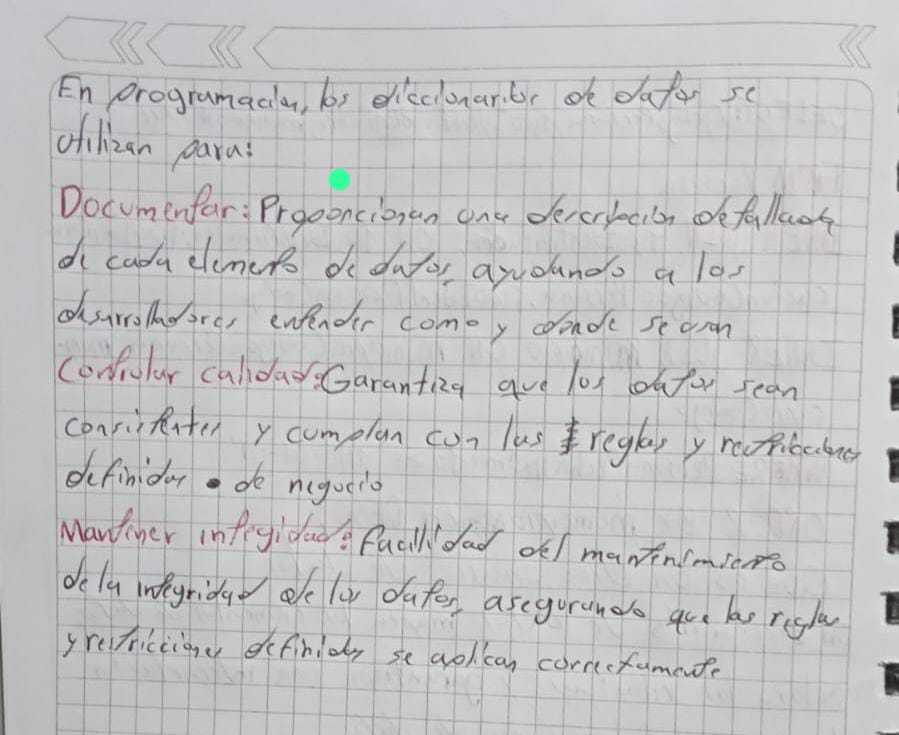 En programación, los diccionarios de datos se
utilizan para:
Documentar: Propooncionan una descripción detallada
de cada elemento de datos, ayudando a los
desarrolladores entender como y donde se usan
Controlar calidad: Garantiza que los datos sean
consistentes y cumplan con las reglas y restricciones
definidas de negocio
Mantiner integidad: facilidad del mantenimiento
de la integridad de los datos, asegurando que las reglas
y restricciones definidas se aplican correctamente